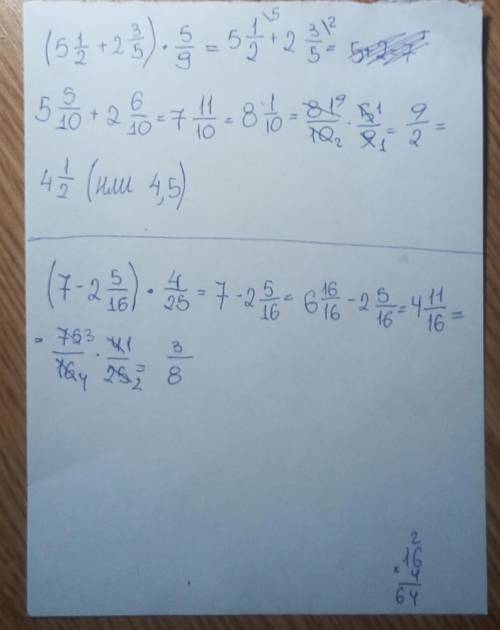 (5 1/2 + 2 3/5) · 5/9 = 5 1/2 \5 + 2 3/5 \2 =
5 5/10 + 2 6/10 = 7 11/10 = 8 1/10 = 81 9/10 2 · 5 1/9 1 = 9/2 =
4 1/2 (или 4,5)
(7 - 2 5/16) · 4/25 = 7 - 2 5/16 = 6 16/16 - 2 5/16 = 4 11/16 =
= 75 3/16 4 · 4 1/25 2 = 3/8
2
16
× 4
64